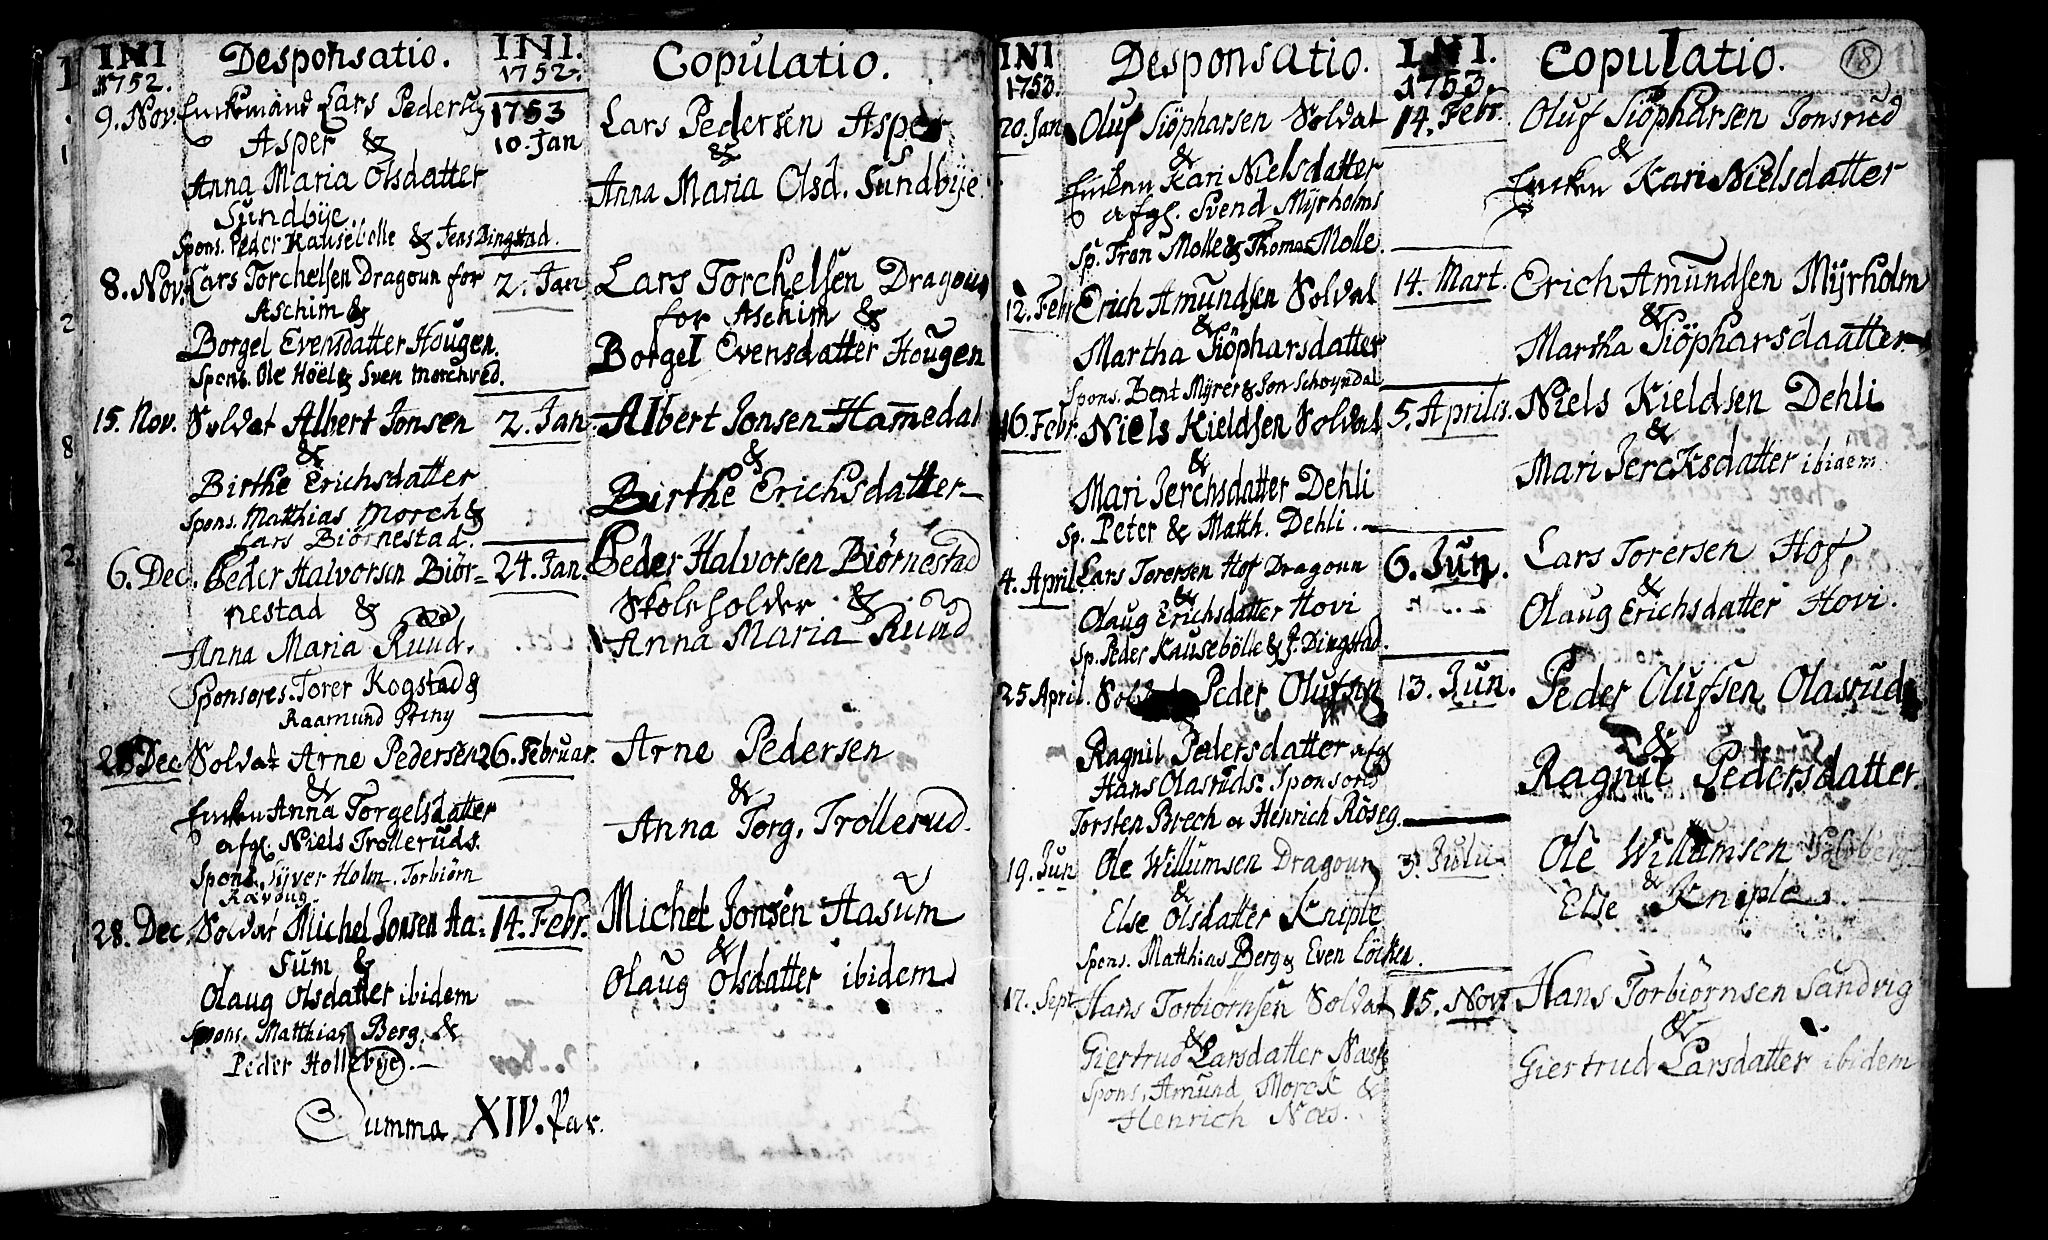 INI
1752.
Desponsatio.
INI.
1752.
Copulatio.
9. Nov. Enckemand Lars Pedersen
Asper &
Anna Maria Olsdatter
Sundbÿe
Spons. Peder Kausebølle & Jens Dingstad.
1753
10. Jan
Lars Pedersen Asper
&
Anna Maria Olsd. Sundbÿe
8. Nov. Lars Torchelsen Dragoun for
Aschim &
Borgel Evensdatter Hougen.
Spons. Ole Höel & Sven Morchved.
2. Jan
Lars Torchelsen Dragoun
for Aschim &
Borgel Evensdatter Hougen
15. Nov. Soldat Albert Jonsen
&
Birthe Erichsdatter
Spons. Matthias Morch &
Lars Biörnestad.
2. Jan
Albert Jonsen Hamedal
&
Birthe Erichsdatter
6. Dec. Peder Halvorsen Biör-
nestad &
Anna Maria Ruud.
Sponsores. Torer Kogstad &
Raamund Griny
24. Jan.
Peder Halvorsen Biörnestad
Skoleholder &
Anna Maria Ruud
28 Dec Soldat Arne Pedersen
&
Encken Anna Torgelsdatter
afg. Niels Trolleruds.
Spons. Siver Holm. Torbiörn
Ravoug.
26. Februar.
Arne Pedersen
&
Anna Torg. Trollerud.
28. Dec. Soldat Michel Jonsen Ha-
sum &
Olaug Olsdatter ibidem
Spons. Matthias Berg. &
Peder Hollebÿe.
14. Febr.
Michel Jonsen Hasum
&
Olaug Olsdatter ibidem
Summa XIV. Par.
INI
1753.
Desponsatio.
INI.
1753.
Copulatio.
18
20. Jan Oluf Siöpharsen Soldat
&
Encken Kari Nielsdatter
afg. Svend Mÿrholms
Sp. Tron Molle & Thomas Molle.
14. Febr.
Oluf Siöpharsen Jonsrud
&
Encken Kari Nielsdatter
12. Febr Erich Amundsen Soldat
&
Martha Siöpharsdatter
Spons. Bent Mÿrer & Jon Schoyndal
14. Mart.
Erich Amundsen Mÿrholm
&
Martha Siöpharsdaatter
16. Febr. Niels Kieldsen Soldat
&
Mari Jerchsdatter Dehli
Sp. Peter & Matth. Dehli.
5. Aprilis.
Niels Kieldsen Dehli
&
Mari Jercksdatter ibidem
4. April. Lars Torersen Hof Dragoun
&
Olaug Erichsdatter Hovi
Sp. Peder Kausebölle & J. Dingstad.
6. Jun.
Lars Torersen Hof,
&
Olaug Erichsdatter Hovi.
25 April. Peder Olufsen
Ragnil Pedersdatter afg
Hans Olasruds: Sponsores
Torsten Brech or Henrich Röseg.
13. Jun.
Peder Olufsen Olasrud
&
Ragnil Pedersdatter.
19. Jun Ole Willumsen Dragoun
&
Else Olsdatter Kniple
Spons. Matthias Berg & Even Löcken.
3. Julii
Ole Willumsen
&
Else Kniple.
17. Sept Hans Torbiörnsen Soldat
&
Giertrud Larsdatter Næss
Spons. Amund Morck &
Henrich Næs.
15. Nov.
Hans Torbiörnsen Sandvig
&
Giertrud Larsdatter ibidem